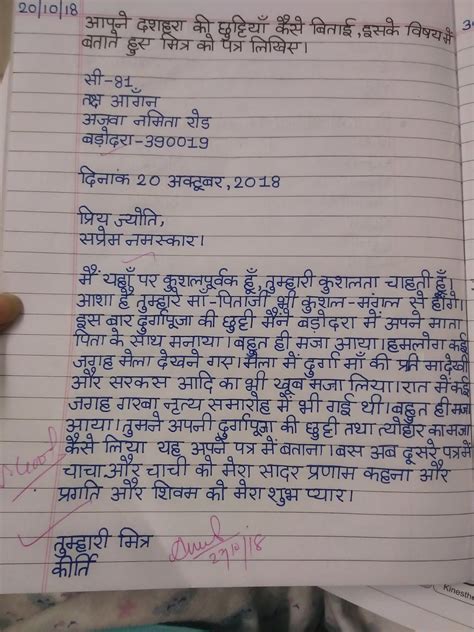 20/10/18
आपने दशहरा की छुट्टियाँ कैसे बिताई, इसके विषय में
बताते हुए मित्र को पत्र लिखिए।
सी-81
तक्ष आँगन
अजवा नमिता रोड
बड़ोदरा-390019
दिनांक 20 अक्टूबर, 2018
प्रिय ज्योति,
सप्रेम नमस्कार।
मैं यहाँ पर कुशलपूर्वक हूँ, तुम्हारी कुशलता चाहती हूँ
आशा है तुम्हारे मा-पिताजी भी कुशल-मंगल से होंगे।
इस बार दुर्गापूजा की छुट्टी मैंने बड़ोदरा में अपने माता
पिता के साथ मनाया। बहुत ही मजा आया। हमलोग कई
जगह मेला देखने गए। मेला में दुर्गा माँ की देखी
और सरकस आदि का भी खूब मजा लिया। रात में कई
जगह गरबा नृत्य समारोह में भी गई थी। बहुत ही मजा
आया। तुमने अपनी दुर्गापूजा की छुट्टी तथा त्योहार का मजा
कैसे लिया यह अपने पत्र में बताना। बस अब दूसरे पत्र में
चाचा और चाची को मेरा सादर प्रणाम कहना और
प्रगति और शिवम को मेरा शुभ प्यार।
Good
तुम्हारी मित्र
कीर्ति
10/18
Kinesthe